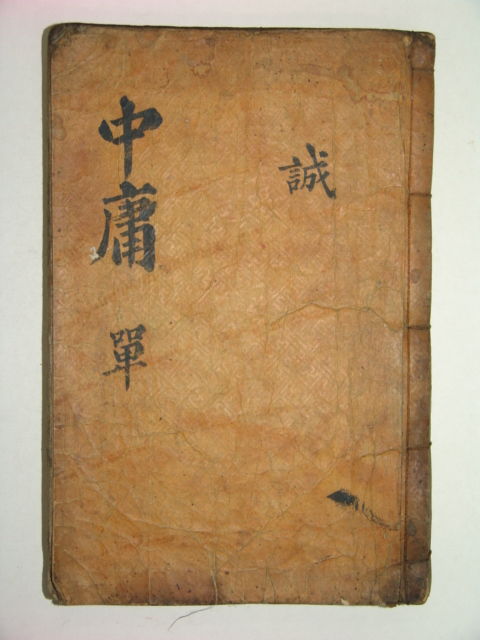 中庸 單
誠